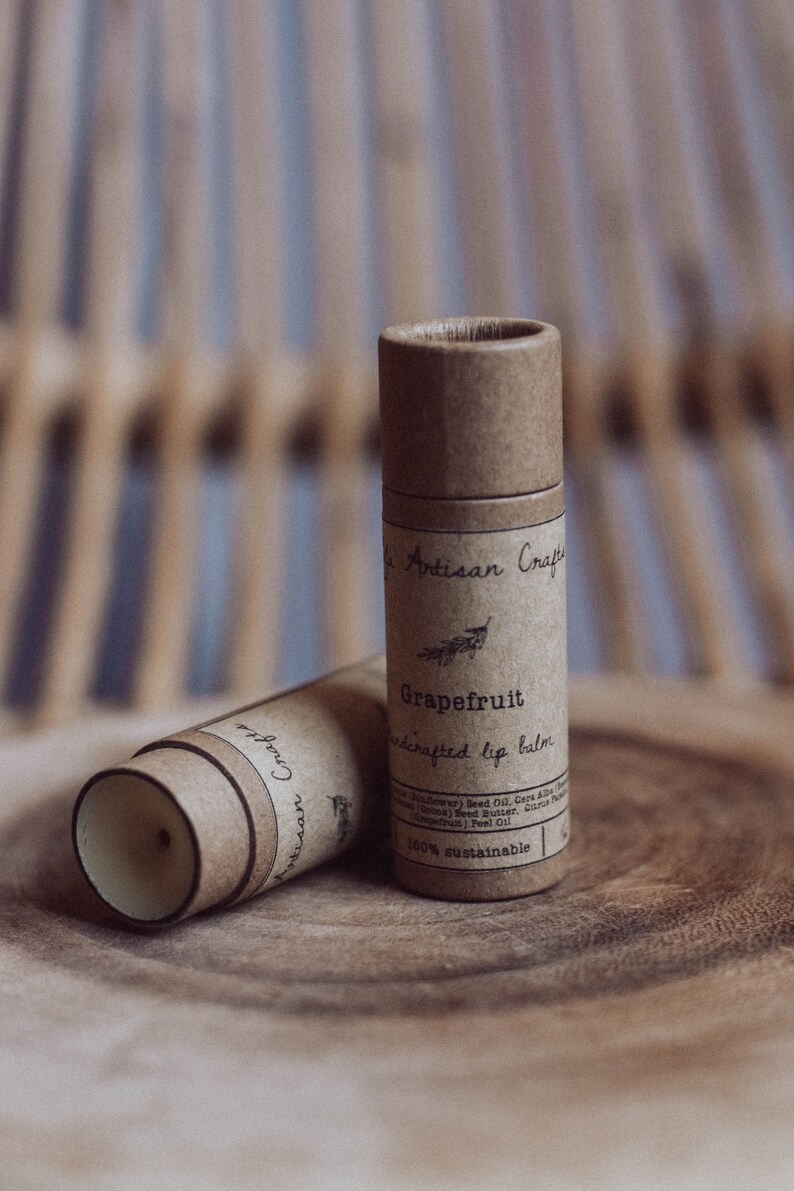 Artisan Crafts
Grapefruit
handcrafted lip balm
(Sunflower) Seed Oil, Cera Alba
(Cocoa) Seed Butter, Citrus
(Grapefruit) Peel Oil
100% sustainable
Artisan Crafts